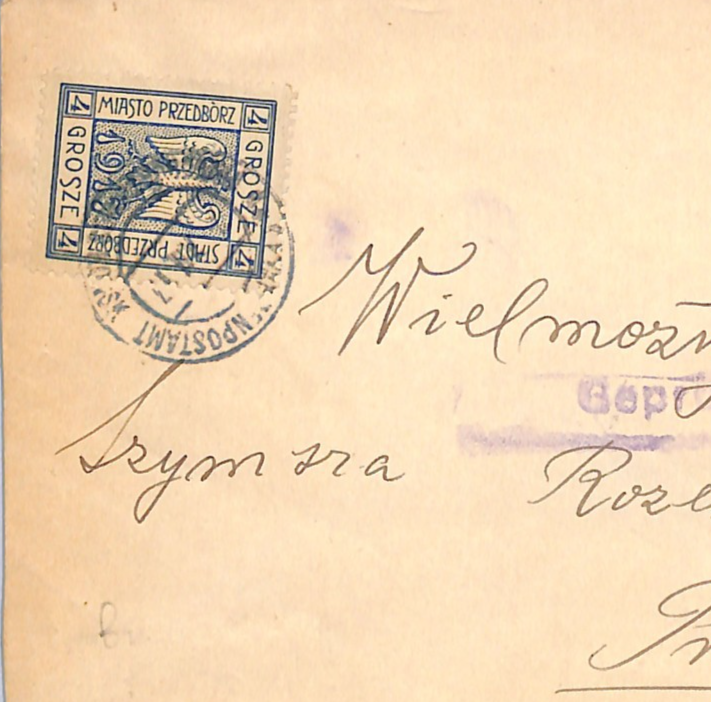 MIASTO PRZEDBÒRZ
4 4
GROSZE GROSZE
4 4
STADT PRZEDBORZ
NPOSTAMT
Wielmożn
Gepr
Szymsza Roze
Pr